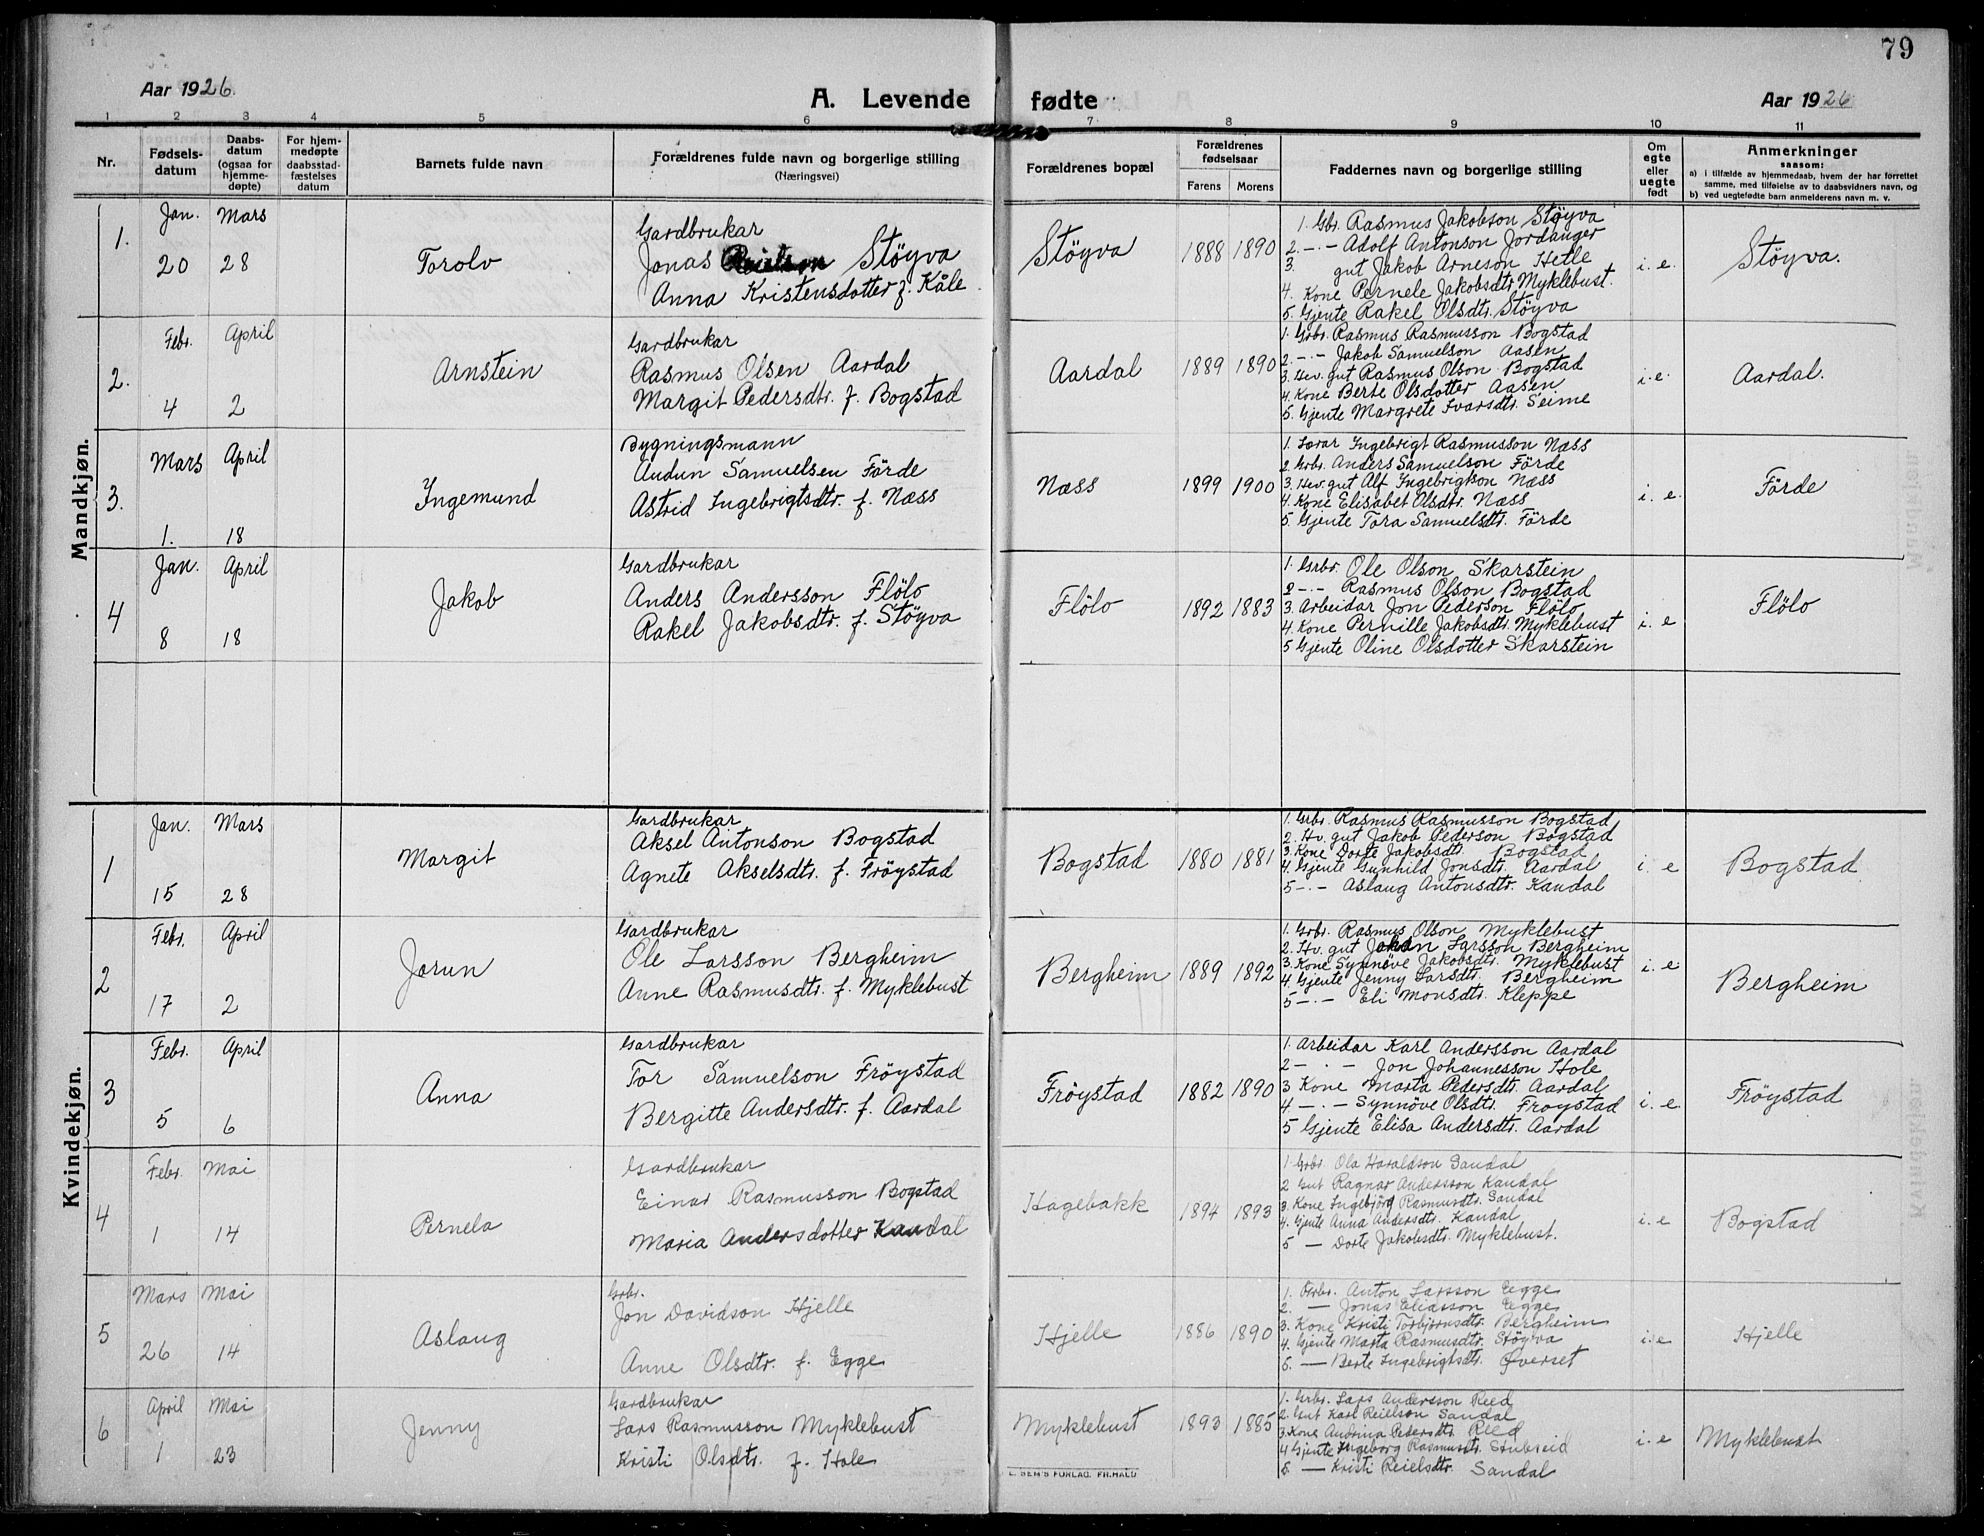 79
Aar 1926.
A. Levende fødte
Aar 1926
1 2 3 4 5 6 7 8 9 10 11
Nr.
Fødsels-
datum
Daabs-
datum
(ogsaa for
hjemme-
døpte)
For hjem-
medøpte
daabsstad-
fæstelses
datum
Barnets fulde navn
Forældrenes fulde navn og borgerlige stilling
(Næringsvei)
Forældrenes bopæl
Forældrenes
fødselsaar
Farens Morens
Faddernes navn og borgerlige stilling
Om
egte
eller
uegte
født
Anmerkninger
saasom:
a) i tilfælde av hjemmedaab, hvem der har forrettet
samme, med tilføielse av to daabsvidners navn, og
b) ved uegtefødte barn anmelderens navn m. v.
Mandkjøn.
1.
Jan. Mars
20 28
Torolv
Gardbrukar
Jonas Støyva
Anna Kristensdotter f. Kåle
Støyva
1888 1890
1. Gbr. Rasmus Jakobson Støyva
2. -·- Adolf Antonson Jordanger
3. gut Jakob Arneson Hetle
4. Kone Pernele Jakobsdtr Myklebust.
5. Gjente Rakel Olsdtr. Støyva
i. e.
Støyva.
2.
Febr. April
4 2
Arnstein
Gardbrukar
Rasmus Olsen Aardal
Margit Pedersdtr. f. Bogstad
Aardal
1889 1890
1. Grbr. Rasmus Rasmusson Bogstad
2. -·- Jakob Samuelson Aasen
3. Hev. gut Rasmus Olson Bogstad
4. Kone Berte Olsdotter Aasen
5. Gjente Margrete Ivarsdtr. Seime
i. e.
Aardal.
3.
Mars April
1. 18
Ingemund
Bygningsmann
Audun Samuelsen Förde
Astrid Ingebrigtsdtr. f. Næss
Næss
1899 1900
1. Lærar Ingebrigt Rasmusson Næss
2 Grbr. Anders Samuelson Förde
3. Hev. gut Alf Ingebrigtson Næss
4. Kone Elisabet Olsdtr. Næss
5. Gjente Tora Samuelsdtr. Förde
i. e.
Förde
4
Jan. April
8 18
Jakob
Gardbrukar
Anders Andersson Flölo
Rakel Jakobsdtr. f. Støyva
Flölo
1892 1883
1. Grbr. Ole Olson Skarstein
2 -·- Rasmus Olson Bogstad
3. Arbeidar Jon Pederson Flölo
4. Kone Pernille Jakobsdtr. Myklebust
5 Gjente Oline Olsdotter Skarstein
i. e
Flölo
Kvindekjøn.
1
Jan. Mars
15 28
Margit
Gardbrukar
Aksel Antonson Bogstad
Agnete Akselsdtr. f. Fröystad
Bogstad
1880 1881
1. Grbr. Rasmus Rasmusson Bogstad
2. Hv. gut Jakob Pederson Bogstad
3. Kone Dorte Jakobsdtr. Bogstad
4. Gjente Gunhild Jonsdtr. Aardal
5 -·- Aslaug Antonsdtr. Kandal
i. e
Bogstad
2
Febr. April
17 2
Jorun
Gardbrukar
Ole Larsson Bergheim
Anne Rasmusdtr. f. Myklebust
Bergheim
1889 1892
1. Grbr. Rasmus Olson Myklebust
2. Hv. gut Johan Larsson Bergheim
3. Kone Synnöve Jakobsdtr. Myklebust
4. Gjente Jenny Larsdtr. Bergheim
5 -·- Eli Monsdtr. Kleppe
i. e
Bergheim
3
Febr. April
5 6
Anna
Gardbrukar
Tor Samuelson Fröystad
Bergitte Andersdtr. f. Aardal
Fröystad
1882 1890
1. Arbeidar Karl Andersson Aardal
2 - · - Jon Johannesson Hole
3 Kone Marta Pedersdtr. Aardal
4 -·- Synnöve Olsdtr. Froystad
5 Gjente Elisa Andersdtr. Aardal
i. e.
Fröystad
4
Febr. Mai
1 14
Pernela
Gardbrukar
Einar Rasmusson Bogstad
Maria Andersdotter Kandal
Hagebakk
1894 1893
1 Grbr. Ola Haraldson Sandal
2 Gut Ragnar Andersson Kandal
3. Kone Ingebjörg Rasmusdtr. Sandal
4. Gjente Anna Andersdtr. Kandal
5 — Dorte Jakobsdtr. Myklebust.
i. e
Bogstad
5
Mars Mai
26 14
Aslaug
Grbr.
Jon Davidson Hjelle
Anne Olsdtr. f. Egge
Hjelle
1886 1890
1. Grbr. Anton Larsson Egge
2. — Jonas Eliasson Egge
3. Kone Kristi Torbjørnsdtr. Bergheim
4. Gjente Marta Rasmusdtr. Støyva
5. — Berte Ingebrigtsdtr. Øverset
i. e
Hjelle
6
April Mai
1 23
Jenny
Gardbrukar
Lars Rasmusson Myklebust
Kristi Olsdtr. f. Hole
Myklebust
1893 1885
1. Grbr. Lars Andersson Reed
2. Gut Karl Reielson Sandal
3. Kone Andrina Pedersdtr. Reed
4 Gjente Ingeborg Rasmusdtr. Stubseid
5. — Kristi Reielsdtr. Sandal
i. e
Myklebust
FORLAG, FR.HALD